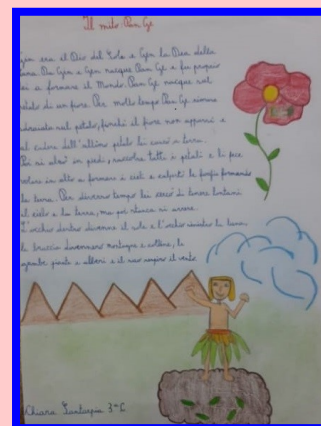 Il mito: Pan Gu
Gen era il Dio del Sole e Gen la Dea della
Luna. Da Gen e Gen nacque Pan Gu e fu proprio
lei a formare il Mondo. Pan Gu nacque sul
petalo di un fiore. Per molto tempo Pan Gu rimase
sdraiata sul petalo, finché il fiore non appassì e
al cadere dell'ultimo petalo lei cascò a terra.
Poi si alzò in piedi, raccolse tutti i petali e li fece
volare in alto a formare i cieli e calpestò le foglie formando
la terra. Per diverso tempo lei cercò di tenere lontani
il cielo e la terra, ma poi stanca si arrese.
L'occhio destro divenne il sole e l'occhio sinistro la luna,
le braccia divennero montagne e colline, le
gambe piante e alberi e il suo respiro il vento.
Chiara 3ª C